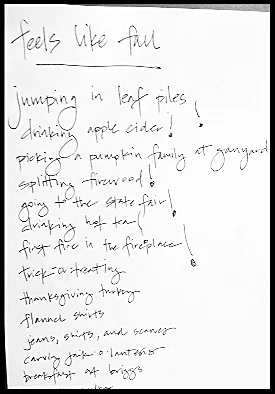 feels like fall
jumping in leaf piles!
drinking apple cider!
picking a pumpkin family at ganyard
splitting firewood!
going to the state fair!
drinking hot tea!
first fire in the fireplace!
trick-o-treating
thanksgiving turkey
flannel shirts
jeans, shirts, and scarves
carving jack o lanterns
breakfast at briggs